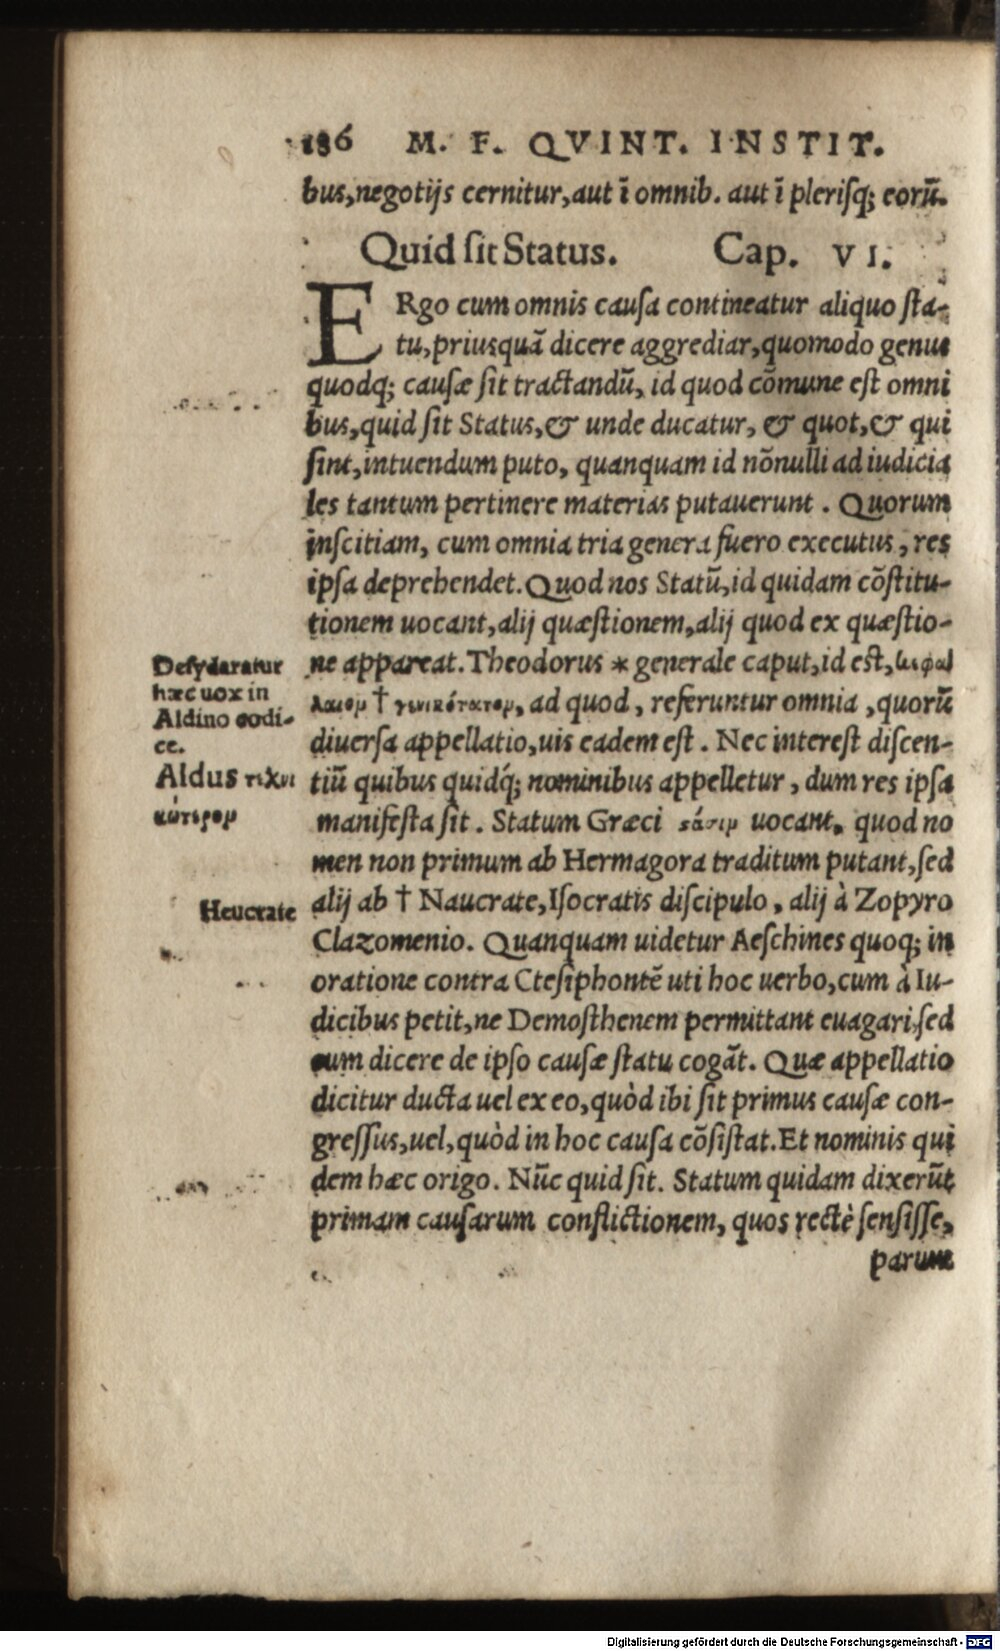 186 M. F. QVINT. INSTIT.
bus,negotijs cernitur,aut ī omnib. aut ī pleriſq; eorū.
Quid ſit Status. Cap. VI.
ERgo cum omnis cauſa contineatur aliquo ſta-
tu,priusquā dicere aggrediar,quomodo genus
quodq; cauſæ ſit tractandū, id quod cōmune eſt omni
bus,quid ſit Status,& unde ducatur, & quot,& qui
ſint,intuendum puto, quanquam id nōnulli ad iudicia
les tantum pertinere materias putauerunt . Quorum
inſcitiam, cum omnia tria genera fuero executus , res
ipſa deprehendet. Quod nos Statū,id quidam cōſtitu-
tionem uocant,alij quæſtionem,alij quod ex quæſtio-
ne appareat. Theodorus * generale caput,id eſt, κεφαλ
λαιομ † γενικότατομ, ad quod , referuntur omnia ,quorū
diuerſa appellatio,uis eadem eſt . Nec intereſt diſcen-
tiū quibus quidq́; nominibus appelletur , dum res ipſa
manifeſta ſit . Statum Græci ςάσιμ uocant, quod no
men non primum ab Hermagora traditum putant,ſed
alij ab † Naucrate,Iſocratis diſcipulo , alij à Zopyro
Clazomenio. Quanquam uidetur Aeſchines quoq; in
oratione contra Cteſiphontē uti hoc uerbo,cum à Iu-
dicibus petit,ne Demoſthenem permittant euagari,ſed
eum dicere de ipſo cauſæ ſtatu cogāt. Quæ appellatio
dicitur ducta uel ex eo,quòd ibi ſit primus cauſæ con-
greſſus,uel,quòd in hoc cauſa cōſiſtat. Et nominis qui
dem hæc origo. Nūc quid ſit. Statum quidam dixerūt
primam cauſarum conflictionem, quos rectè ſenſiſſe,
parum
Deſyderatur
hæc uox in
Aldino codi-
ce.
Aldus τεχνι
κώτερομ
Heucrate
Digitalisierung gefördert durch die Deutsche Forschungsgemeinschaft - DFG